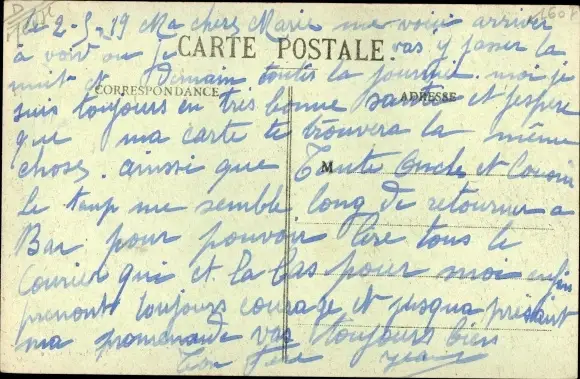 le 2-5-39 Ma chère Marie me voici arriver
à voir ou je vas y passer la
CARTE POSTALE
nuit et Demain toutes la journée. moi je
CORRESPONDANCE
ADRESSE
suis toujours en très bonne santé et j'espère
que ma carte te trouvera la même
chose. ainsi que Tante Oncle et Cousin
M
le temp me semble long de retourner a
Bar pour pouvoir lire tous le
courier qui et la bas pour moi enfin
prenont toujours courage et jusqua présent
ma promenade vas toujours bien
Ton frère Jean